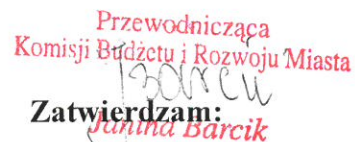 Przewodnicząca
Komisji Budżetu i Rozwoju Miasta
Zatwierdzam:
Janina Barcik